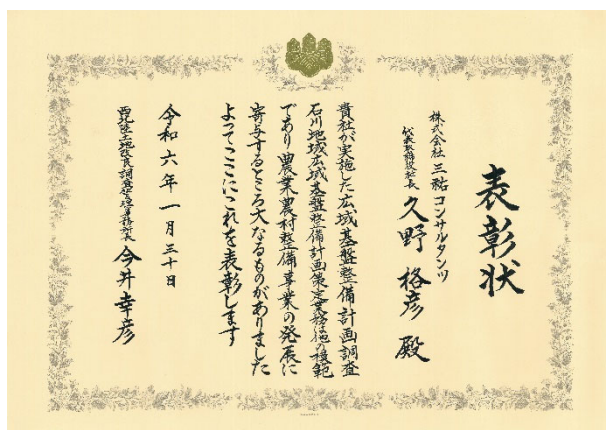 表彰状
株式会社 三祐コンサルタンツ
代表取締役社長 久野 格彦 殿
貴社が実施した広域基盤整備計画調査
石川地域広域基盤整備計画策定業務は他の模範
であり 農業農村整備事業の発展に
寄与するところ大なるものがありました
よってここにこれを表彰します
令和六年一月三十日
西北陸土地改良調査管理事務所長 今井幸彦